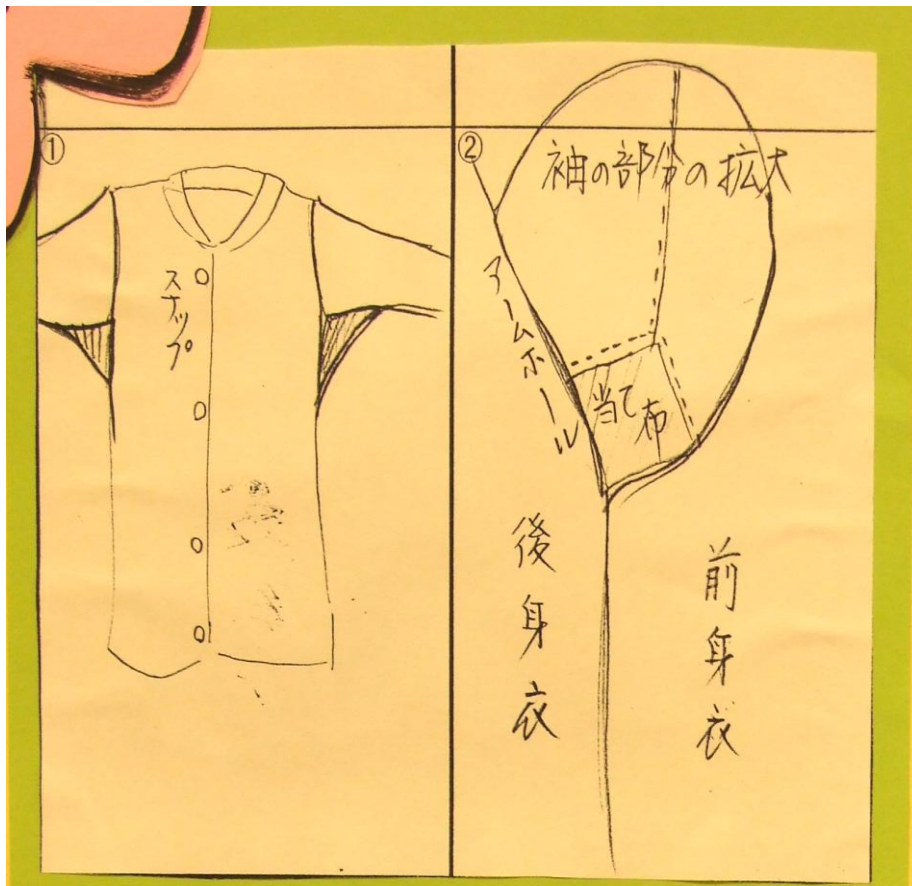 ①
スナップ
②
袖の部分の拡大
アームホール
当て布
後身衣
前身衣